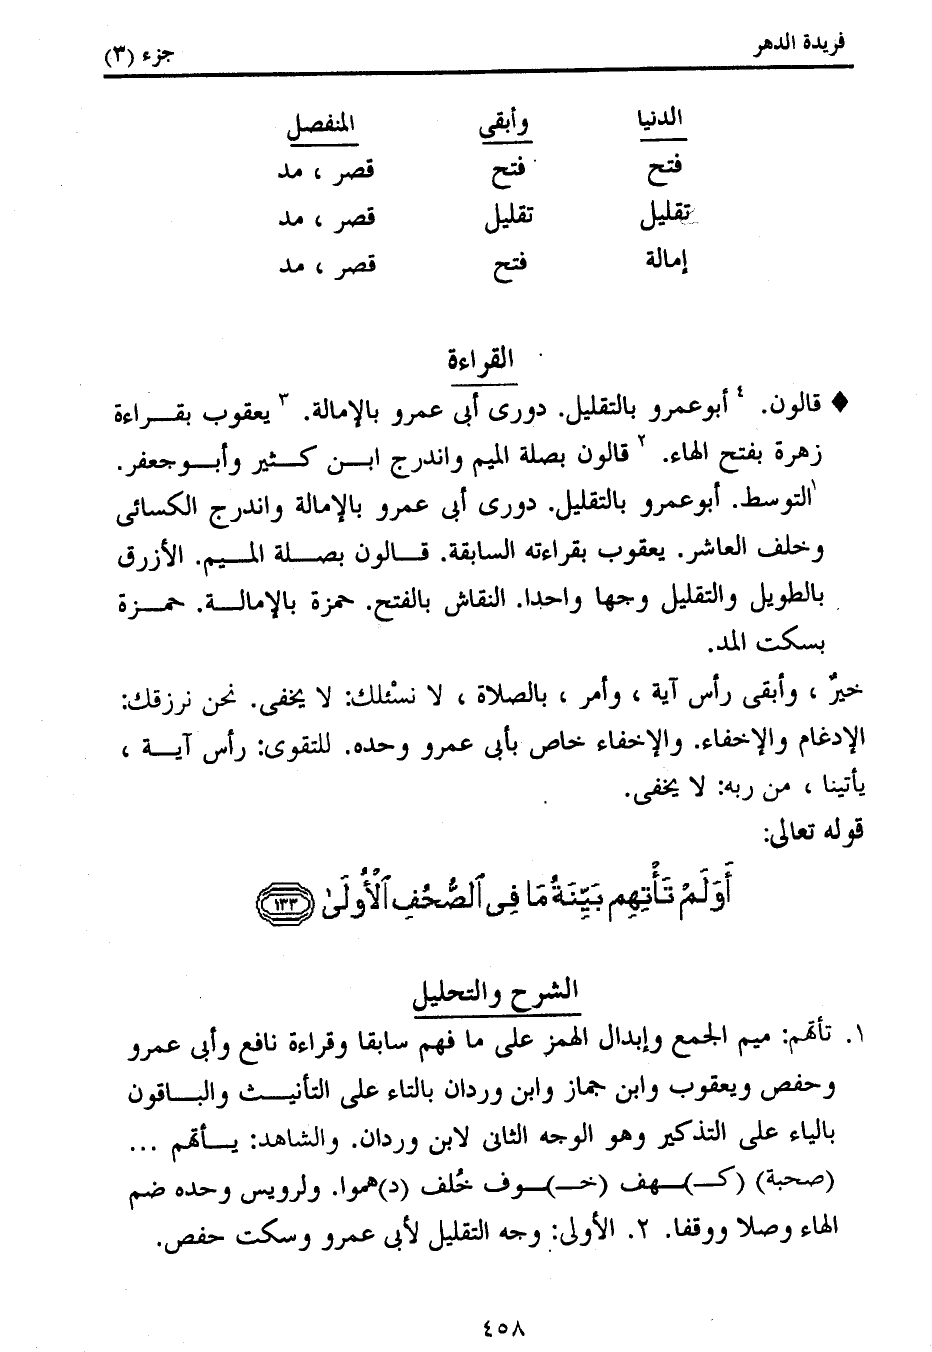 فريدة الدهر
جزء (٣)
الدنيا وأبقى المنفصل
فتح فتح قصر ، مد
تقليل تقليل قصر ، مد
إمالة فتح قصر ، مد
القراءة
♦ قالون. ٤ أبوعمرو بالتقليل. دورى أبى عمرو بالإمالة. ٣ يعقوب بقـــراءة
زهرة بفتح الهاء. ٢ قالون بصلة الميم واندرج ابـــن كـــثير وأبـــوجعفر.
١ التوسط. أبوعمرو بالتقليل. دورى أبى عمرو بالإمالة واندرج الكسائى
وخلف العاشر. يعقوب بقراءته السابقة. قـــالون بصـــلة المـــيم. الأزرق
بالطويل والتقليل وجها واحدا. النقاش بالفتح. حمزة بالإمالـــة. حمـــزة
بسكت المد.
خيرٌ ، وأبقى رأس آية ، وأمر ، بالصلاة ، لا نسْئلك: لا يخفى. نحن نرزقك:
الإدغام والإخفاء. والإخفاء خاص بأبى عمرو وحده. للتقوى: رأس آيـــة ،
يأتينا ، من ربه: لا يخفى.
قوله تعالى:
أَوَلَمْ تَأْتِهِم بَيِّنَةُ مَا فِى ٱلصُّحُفِ ٱلْأُولَىٰ ١٣٣
الشرح والتحليل
١. تأتهم: ميم الجمع وإبدال الهمز على ما فهم سابقا وقراءة نافع وأبى عمرو
وحفص ويعقوب وابن جماز وابن وردان بالتاء على التأنيـــث والبـــاقون
بالياء على التذكير وهو الوجه الثانى لابن وردان. والشاهد: يـــأتهم ...
(صحبة) (كـــ)ـــهف (خـــ)ـــوف خُلف (د)هموا. ولرويس وحده ضم
الهاء وصلا ووقفا. ٢. الأولى: وجه التقليل لأبى عمرو وسكت حفص.
٤٥٨